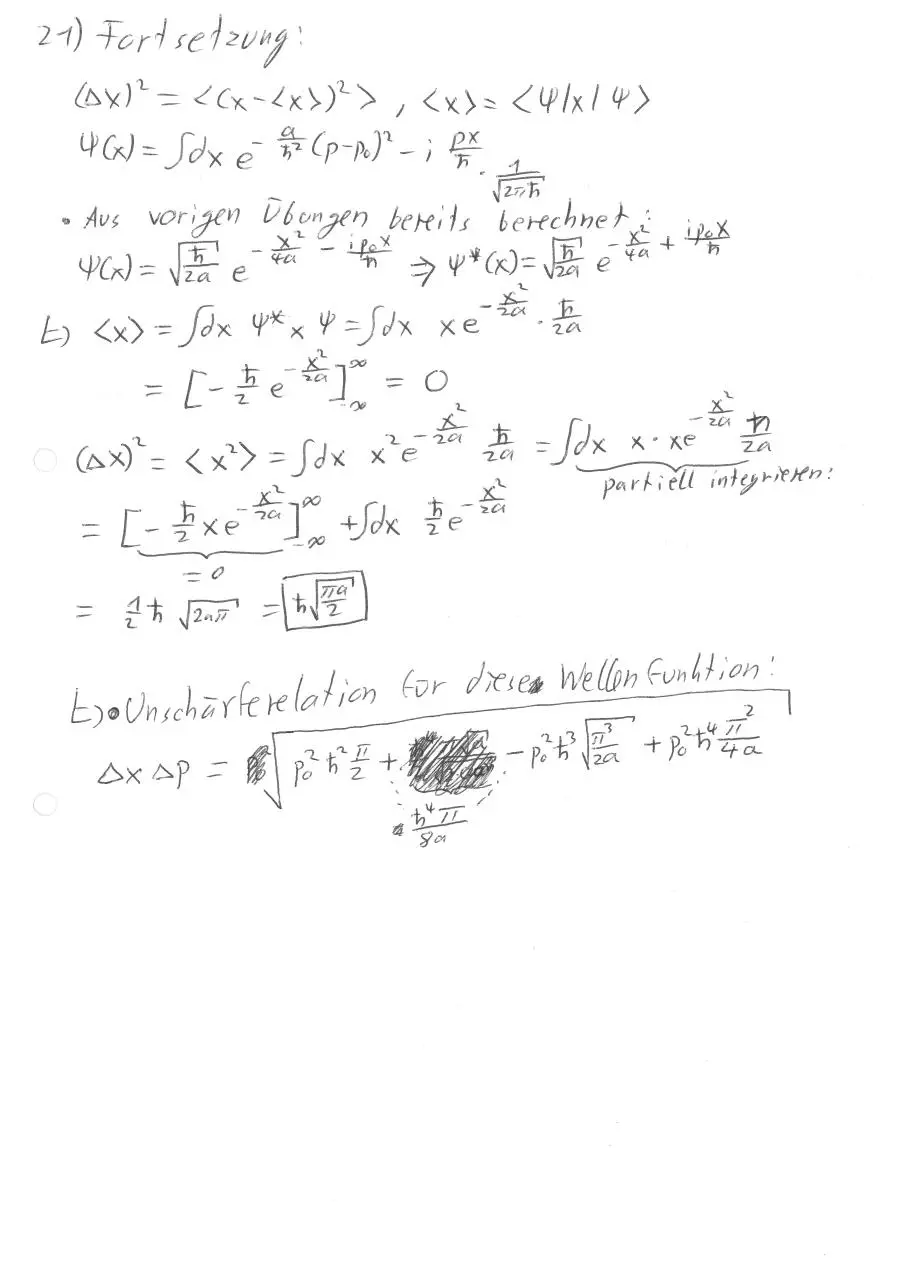 21) Fortsetzung:
(Δx)² = <(x-<x>)²> , <x> = <Ψ|x|Ψ>
Ψ(x) = ∫dx e^(-a/ħ² (p-p₀)² - i px/ħ) · 1/√(2πħ)
• Aus vorigen Übungen bereits berechnet:
Ψ(x) = √(ħ/2a) e^(-x²/4a - ip₀x/ħ) ⇒ Ψ*(x) = √(ħ/2a) e^(-x²/4a + ip₀x/ħ)
t) <x> = ∫dx Ψ* x Ψ = ∫dx x e^(-x²/2a) · ħ/2a
= [-ħ/2 e^(-x²/2a)]_-∞^∞ = 0
(Δx)² = <x²> = ∫dx x² e^(-x²/2a) ħ/2a = ∫dx x · x e^(-x²/2a) ħ/2a
partiell integrieren:
= [-ħ/2 x e^(-x²/2a)]_-∞^∞ + ∫dx ħ/2 e^(-x²/2a)
= 0
= 1/2 ħ √(2aπ) = ħ√(πa/2)
t) • Unschärferelation für diese Wellenfunktion:
Δx Δp = √(p₀² ħ² π/2 + ħ⁴π/8a - p₀² ħ³ √(π³/2a) + p₀² ħ⁴ π²/4a)